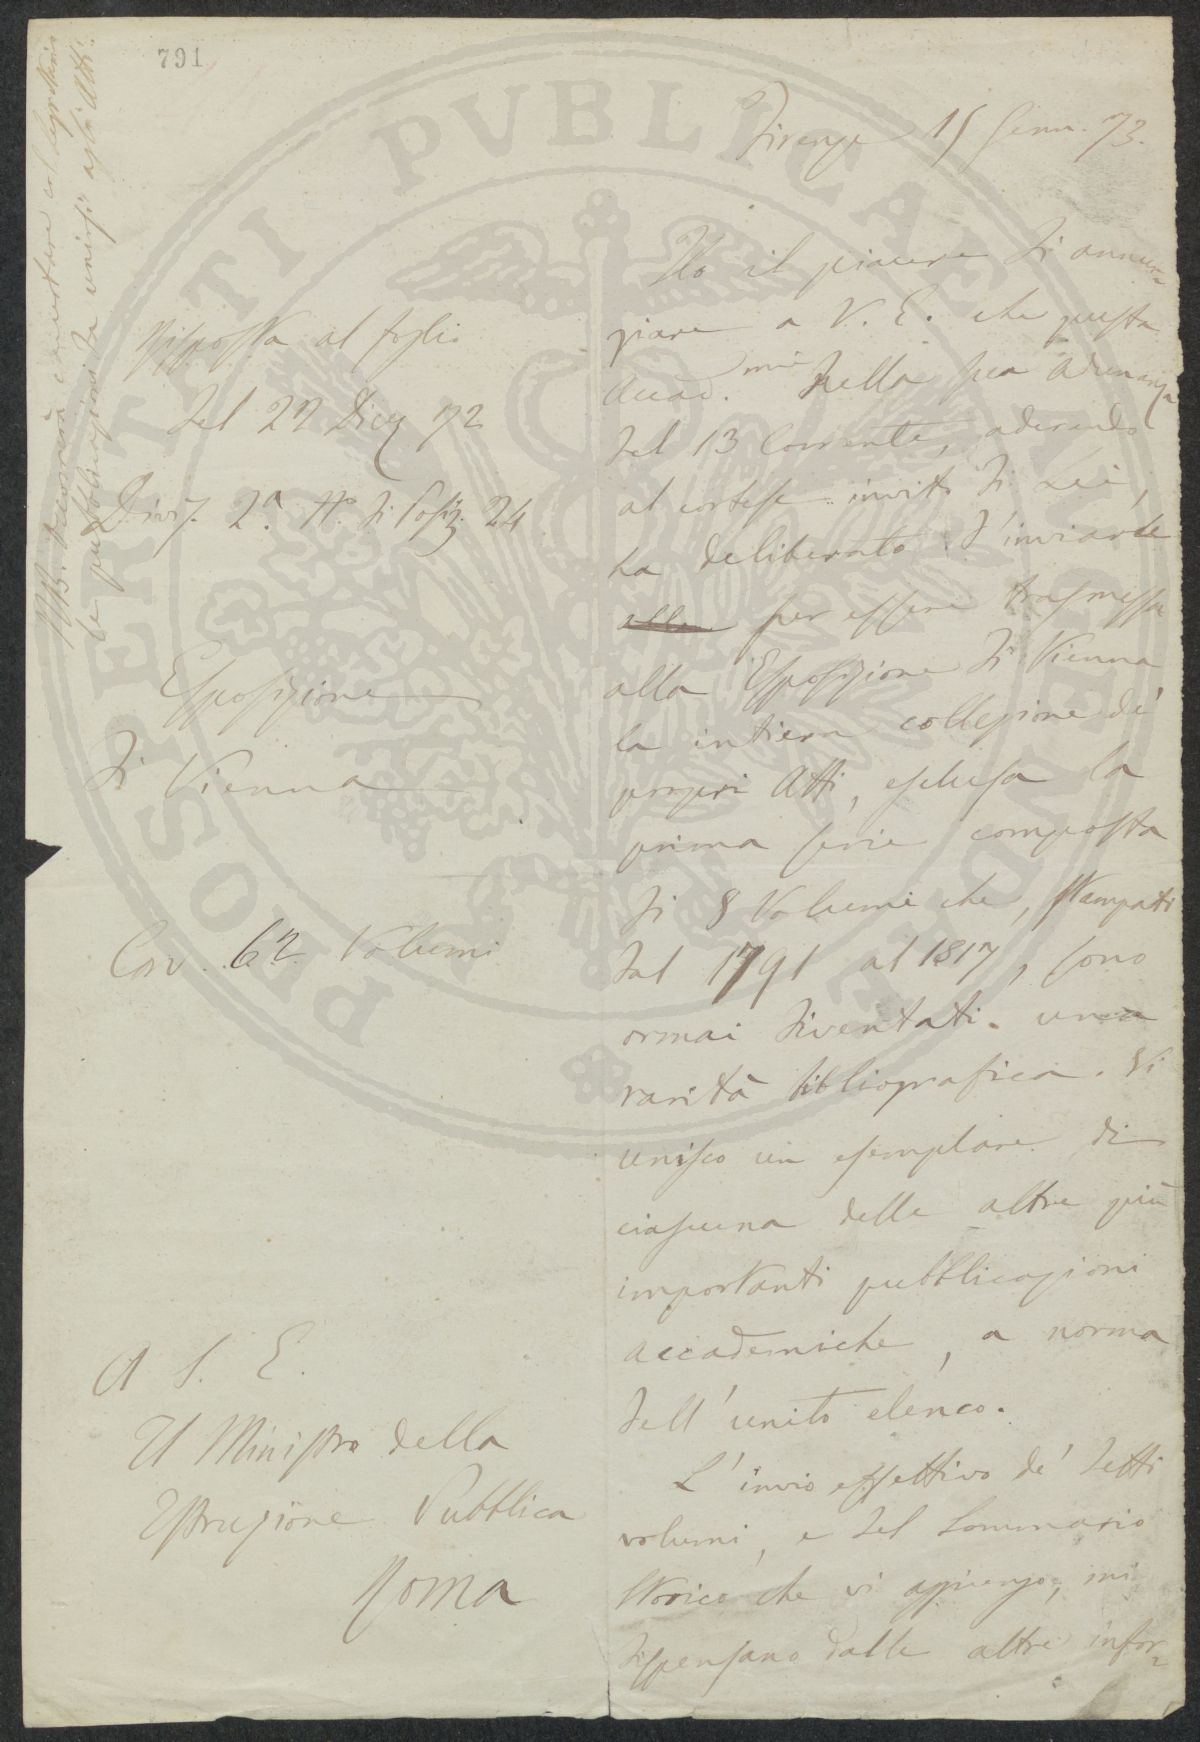 791
Firenze 15 Genn. 73.
NB. Faranno consultare col legittimo
le pubblicazioni da unirsi agli Atti.
Risposta al foglio
del 22 Dice. 72
Divis. 2.ª N.º di Posiz. 24
Esposizione
di Vienna
Con 62 Volumi
A S. E.
Il Ministro della
Istruzione Pubblica
Roma
Ho il piacere di annun=
ziare a V. E. che questa
Accad.mia nella sua adunanza
del 13 Corrente, aderendo
al cortese invito di Lei,
ha deliberato d'inviarle
alla per essere trasmessa
alla Esposizione di Vienna
la intiera collezione de'
propri Atti, esclusa la
prima serie composta
di 8 Volumi che, stampati
dal 1791 al 1817, sono
ormai diventati una
rarità bibliografica. Vi
unisco un esemplare di
ciascuna delle altre più
importanti pubblicazioni
accademiche, a norma
dell'unito elenco.
L'invio effettivo de' detti
volumi, e del Sommario
Storico che vi aggiungo, mi
dispensano dalle altre infor=
PVBLICAE
PROSPERITATI